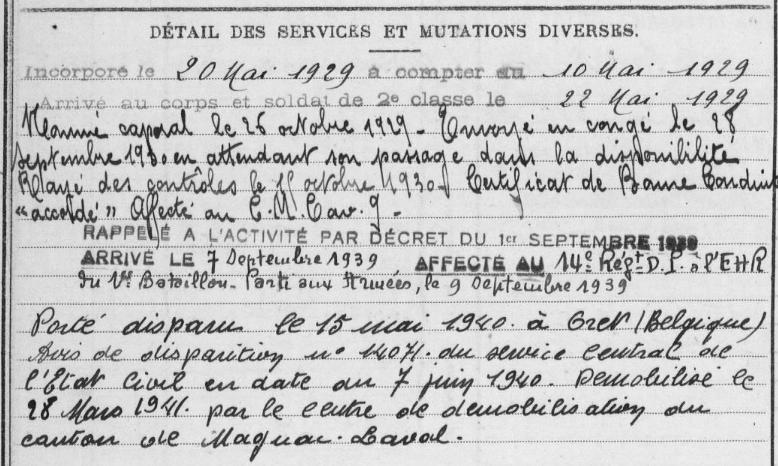 DÉTAIL DES SERVICES ET MUTATIONS DIVERSES.
Incorporé le 20 Mai 1929 à compter du 10 Mai 1929
Arrivé au corps et soldat de 2e classe le 22 Mai 1929
Nommé caporal le 26 octobre 1929 - Envoyé en congé le 28
septembre 1930 en attendant son passage dans la disponibilité
Rayé des contrôles le 1er octobre 1930. Certificat de Bonne Conduite
"accordé" Affecté au C.M. Cav. 9 -
RAPPELÉ A L'ACTIVITÉ PAR DÉCRET DU 1er SEPTEMBRE 1939
ARRIVÉ LE 7 Septembre 1939 AFFECTÉ AU 14e Régt D.P. à l'EHR
du Bataillon - Parti aux Armées, le 9 Septembre 1939
Porté disparu le 15 mai 1940. à (Belgique)
Avis de disparition n° 14071. du service Central de
l'Etat Civil en date du 7 juin 1940. Démobilisé le
28 Mars 1941. par le centre de démobilisation du
canton de Magnac-Laval.